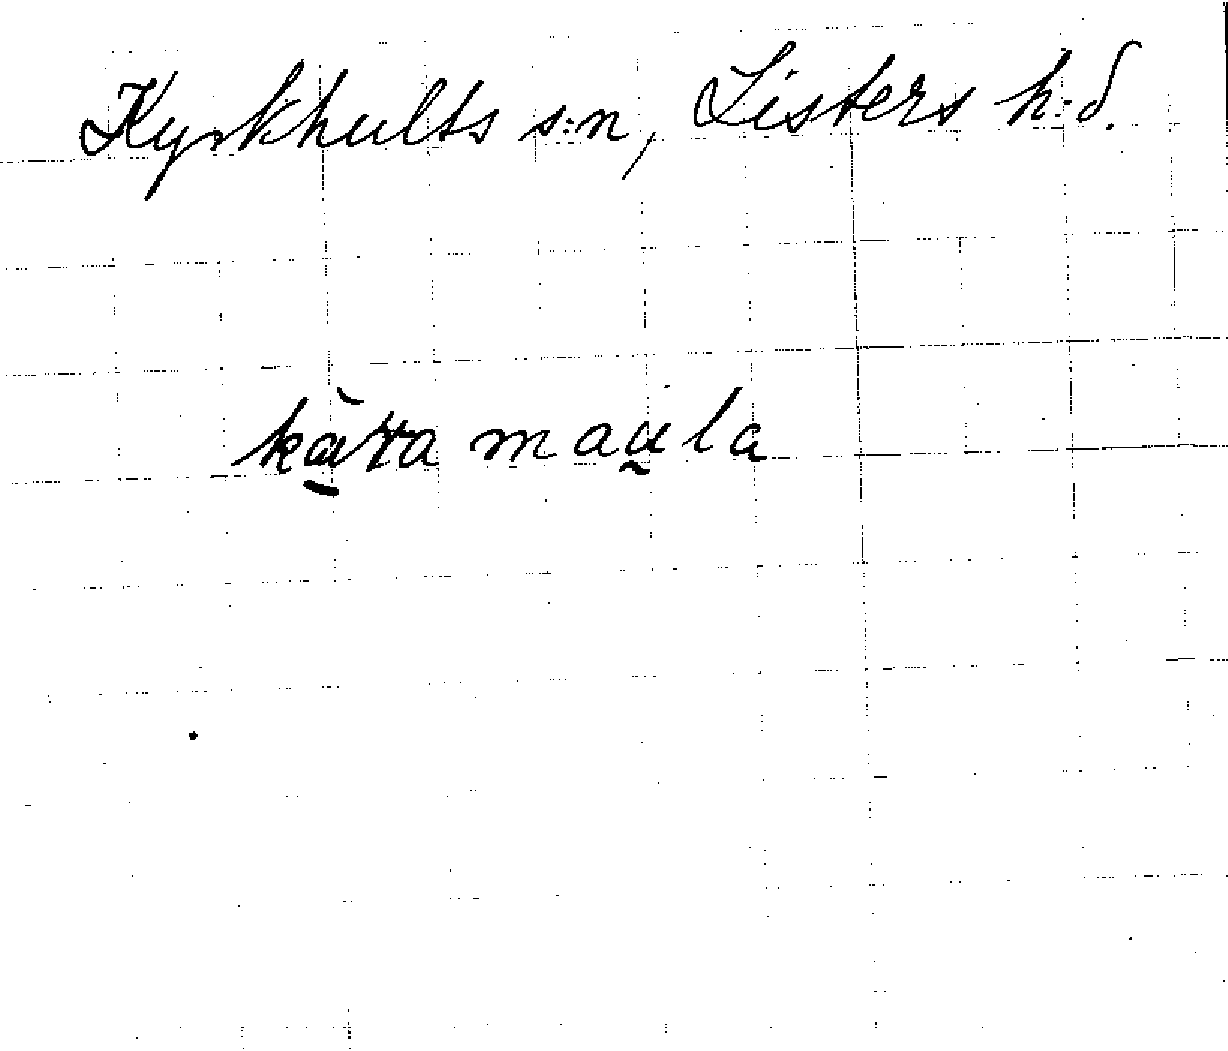 Kyrkhults s:n, Listers h:d.
maula